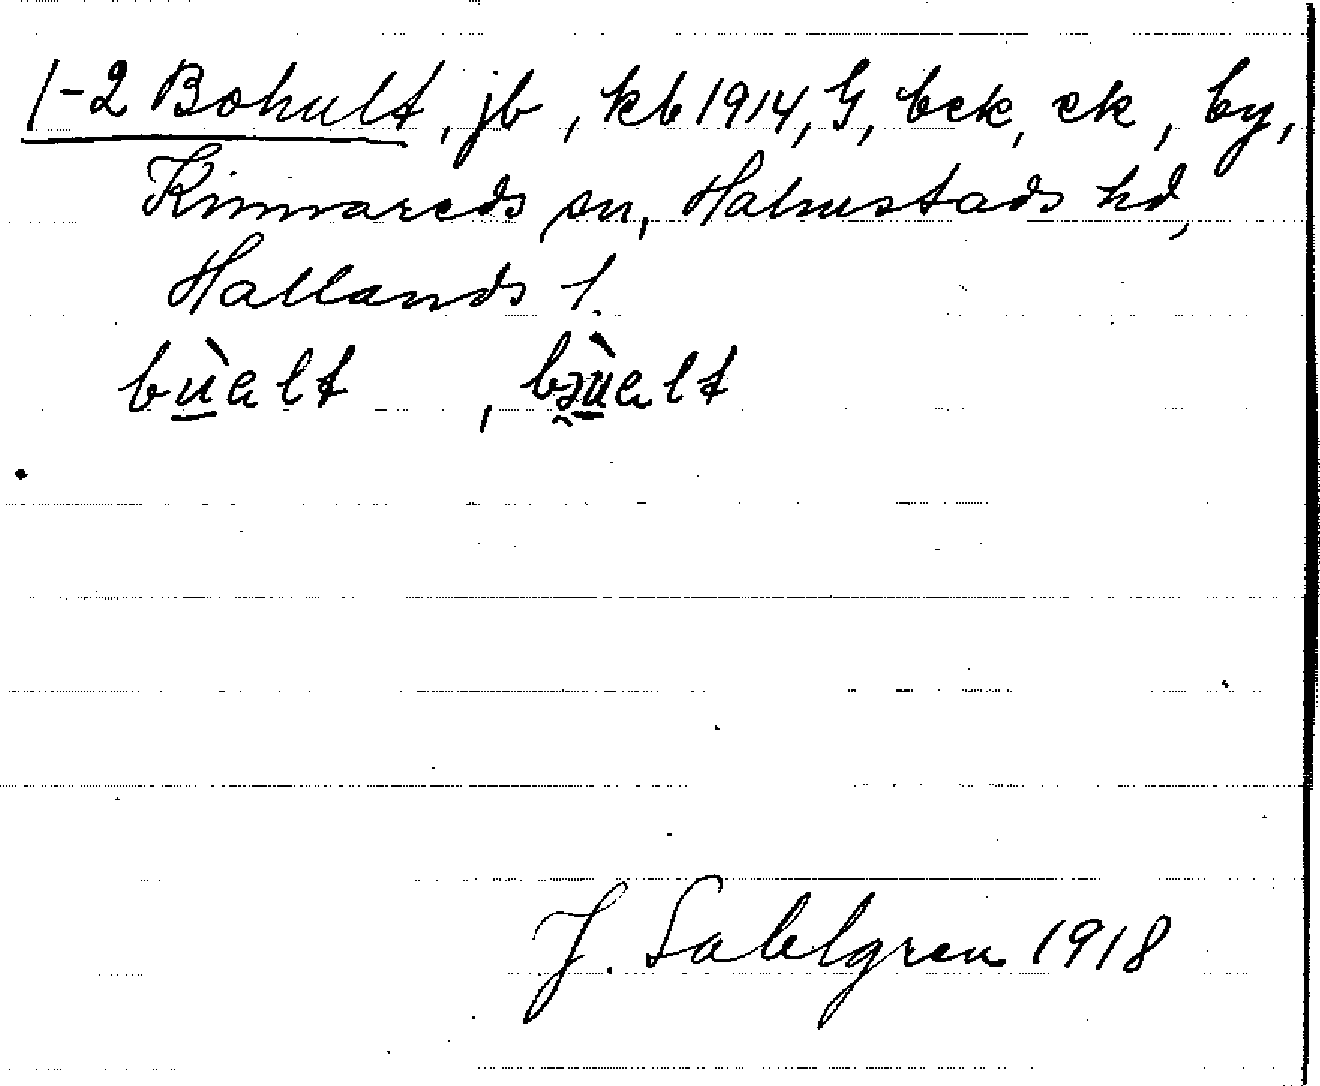 1-2 Bohult, jb, kb 1914, G, bek, ek, by,
Kinnareds sn, Halmstads hd,
Hallands l.
bù̲ɐlt , bə̯ù̲ɐlt
J. Sahlgren 1918